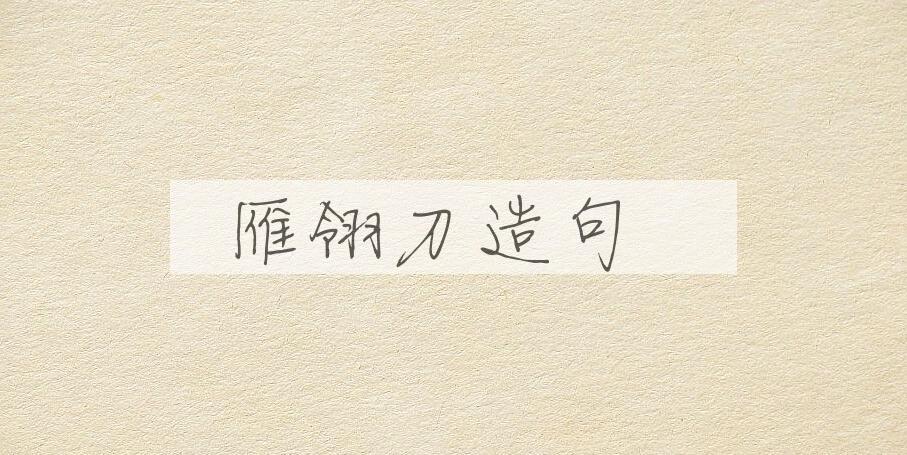 雁翎刀造句